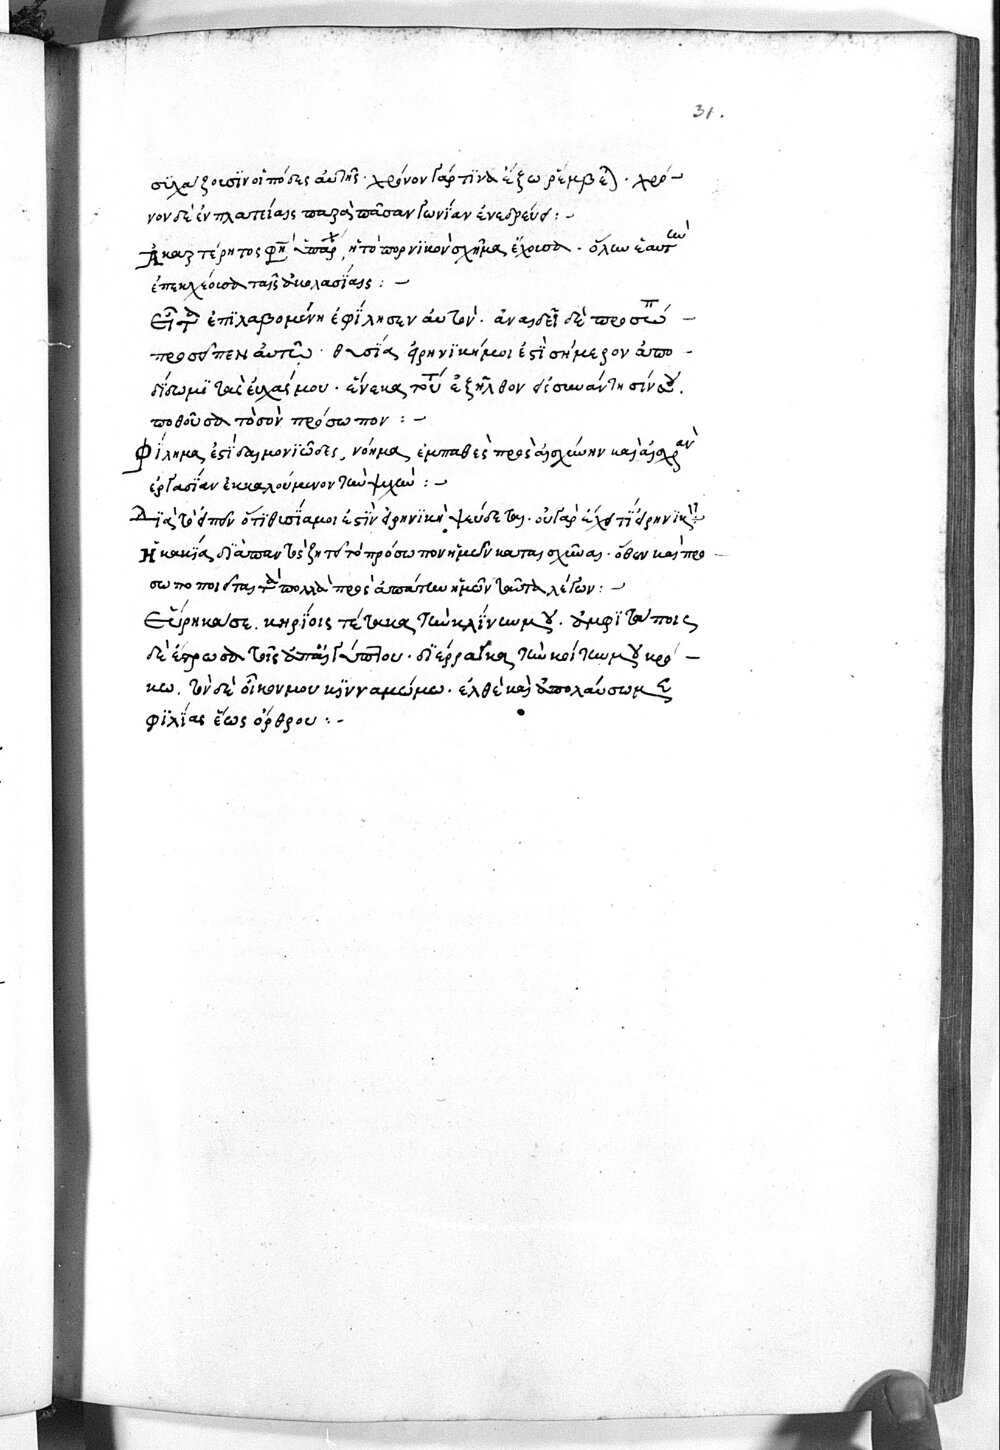 31.
συχάζουσιν οἱ πόδες αὐτῆς· χρόνον γάρ τινα ἔξω ῥέμβε · χρό-
νον δὲ ἐν πλατείαις παρὰ πᾶσαν γωνίαν ἐνεδρεύει :-
τὸ πορνικὸν σχῆμα ἔχουσα · ὅλην ἑαυτὴν
ταῖς ἀκολασίαις :-
Εἶτα ἐπιλαβομένη ἐφίλησεν αὐτόν· ἀναιδεῖ δὲ προσώπω
προσεῖπεν αὐτῶ· θυσία εἰρηνική μοι ἐστὶ σήμερον ἀπο-
δίδωμι τὰς εὐχάς μου· ἕνεκα τούτου ἐξῆλθον εἰς συνάντησίν σου.
ποθοῦσα τὸ σὸν πρόσωπον :-
Φίλημα ἐστὶ δαιμονιῶδες, νόημα ἐμπαθὲς πρὸς αἰσχύνην καὶ αἰσχρὰν
ἐργασίαν ἐκκαλούμενον τὴν ψυχὴν :-
Διὰ τὸ εἰπεῖν ὅτι θυσία μοι ἐστὶν εἰρηνικὴ ψεύδεται· οὐ γὰρ ἔχει τι εἰρηνικὸν
Ἡ κακία διὰ παντὸς ζητεῖ τὸ πρόσωπον ἡμῶν καταισχῦναι· ὅθεν καὶ προ-
σωποποιεῖται τὰ πολλὰ πρὸς ἀπάτην ἡμῶν ταῦτα λέγων :-
Εὕρηκά σε. κηρίοις τέτακα τὴν κλίνην μου. ἀμφιτάποις
δὲ ἔστρωσα τοῖς ἀπ' Αἰγύπτου· διέρραγκα τὴν κοίτην μου κρό-
κω. τὸν δὲ οἶκόν μου κινναμώμω· ἐλθὲ καὶ ἀπολαύσωμεν
φιλίας ἕως ὄρθρου :-